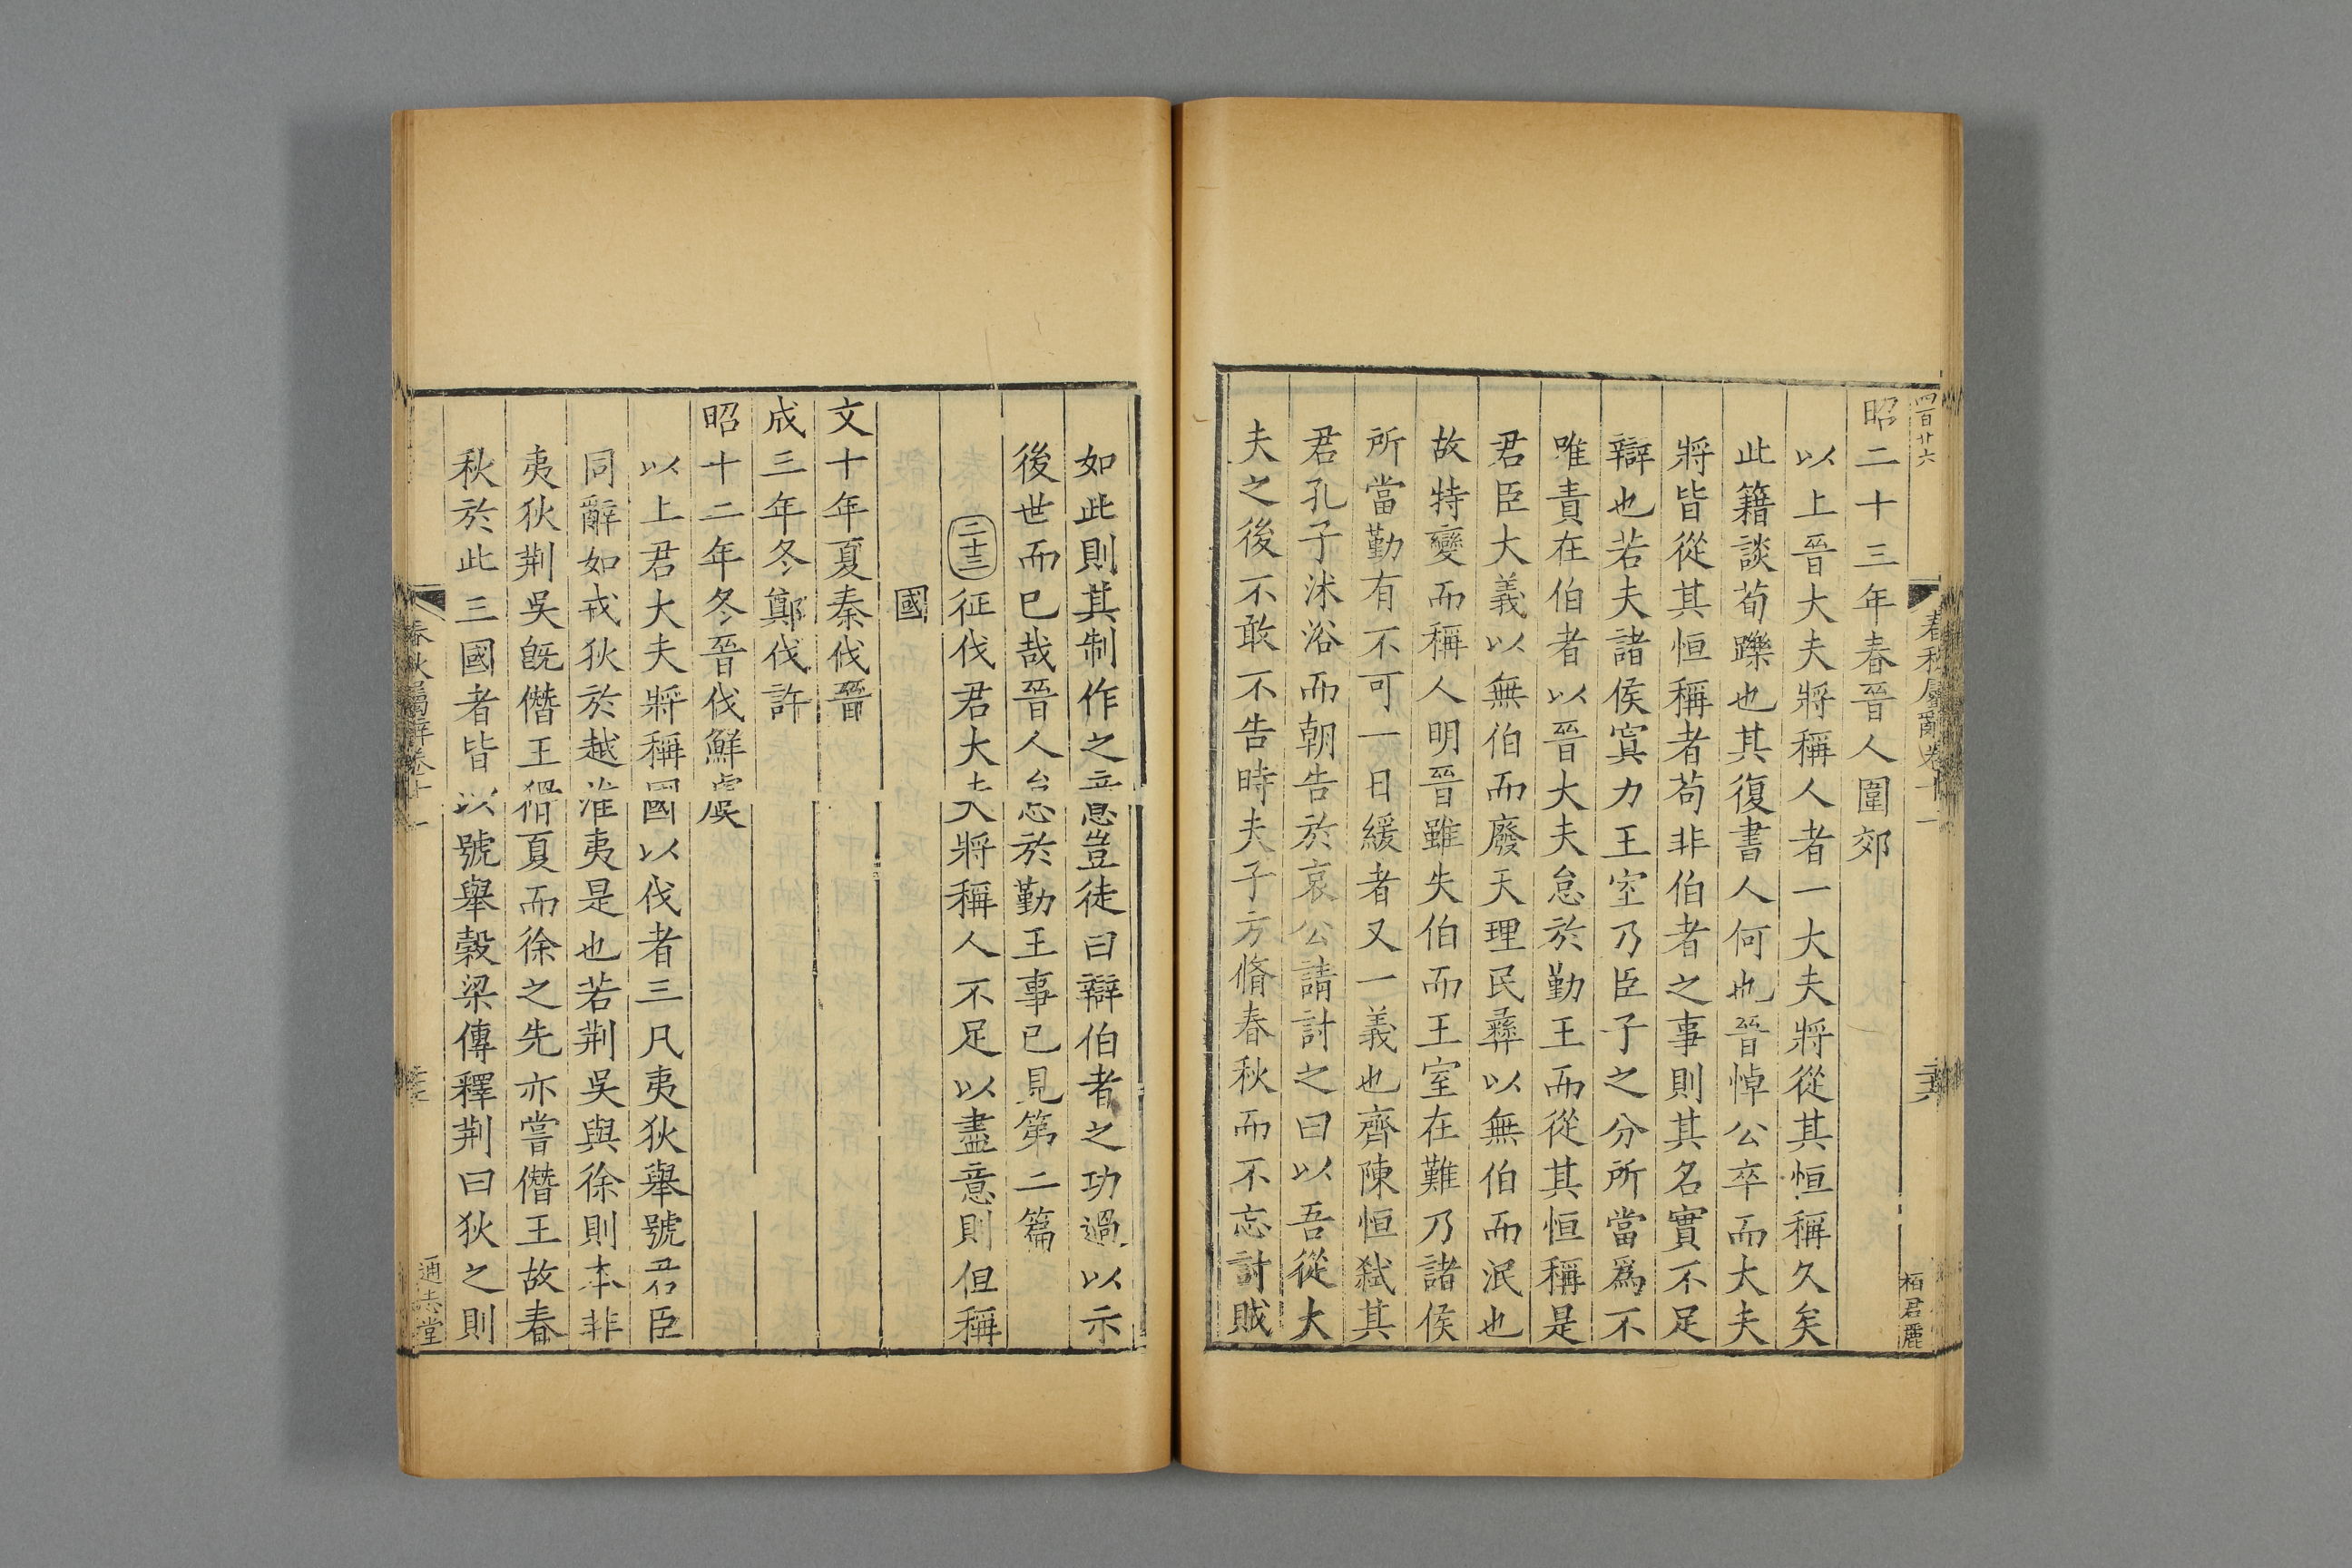 四百廿六
春秋屬辭卷十一
栢君麗
昭二十三年春晉人圍郊
以上晉大夫將稱人者一大夫將從其恒稱久矣
此籍談荀躒也其復書人何也晉悼公卒而大夫
將皆從其恒稱者苟非伯者之事則其名實不足
辯也若夫諸侯寘力王室乃臣子之分所當爲不
唯責在伯者以晉大夫怠於勤王而從其恒稱是
君臣大義以無伯而廢天理民彝以無伯而泯也
故特變而稱人明晉雖失伯而王室在難乃諸侯
所當勤有不可一日緩者又一義也齊陳恒弑其
君孔子沐浴而朝告於哀公請討之曰以吾從大
夫之後不敢不告時夫子方脩春秋而不忘討賊
如此則其制作之意豈徒曰辯伯者之功過以示
後世而已哉晉人怠於勤王事已見第二篇
二十三征伐君大夫將稱人不足以盡意則但稱
國
文十年夏秦伐晉
成三年冬鄭伐許
昭十二年冬晉伐鮮虞
以上君大夫將稱國以伐者三凡夷狄舉號君臣
同辭如戎狄於越淮夷是也若荆吳與徐則本非
夷狄荆吳旣僭王猾夏而徐之先亦嘗僭王故春
秋於此三國者皆以號舉穀梁傳釋荆曰狄之則
春秋屬辭卷十一
通志堂